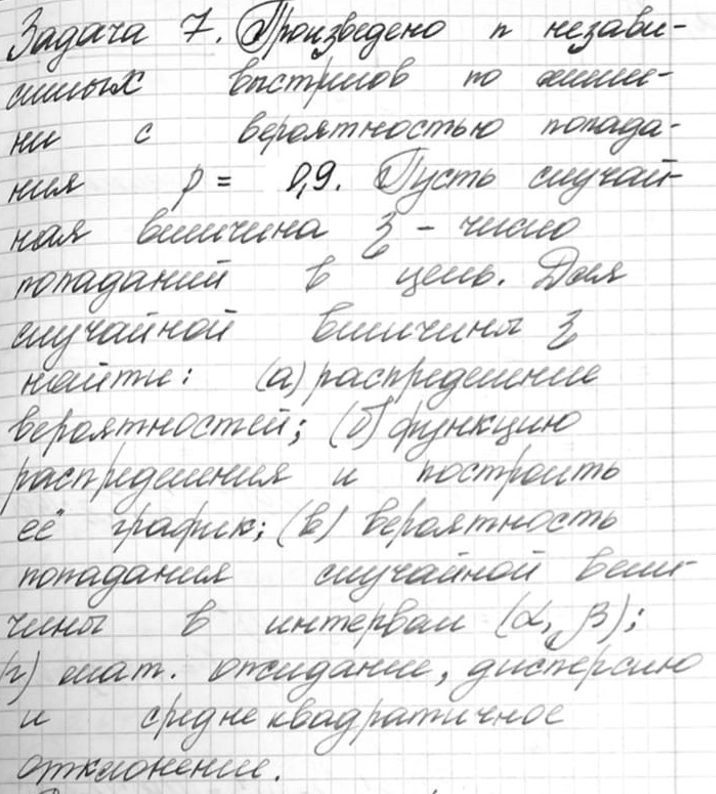 Задача 7. Произведено n незави-
симых выстрелов по мише-
ни с вероятностью попада-
ния p = 0,9. Пусть случай-
ная величина ξ - число
попаданий в цель. Для
случайной величины ξ
найти: (а) распределение
вероятностей; (б) функцию
распределения и построить
её график; (в) вероятность
попадания случайной вели-
чины в интервал (α, β);
(г) мат. ожидание, дисперсию
и среднеквадратичное
отклонение.